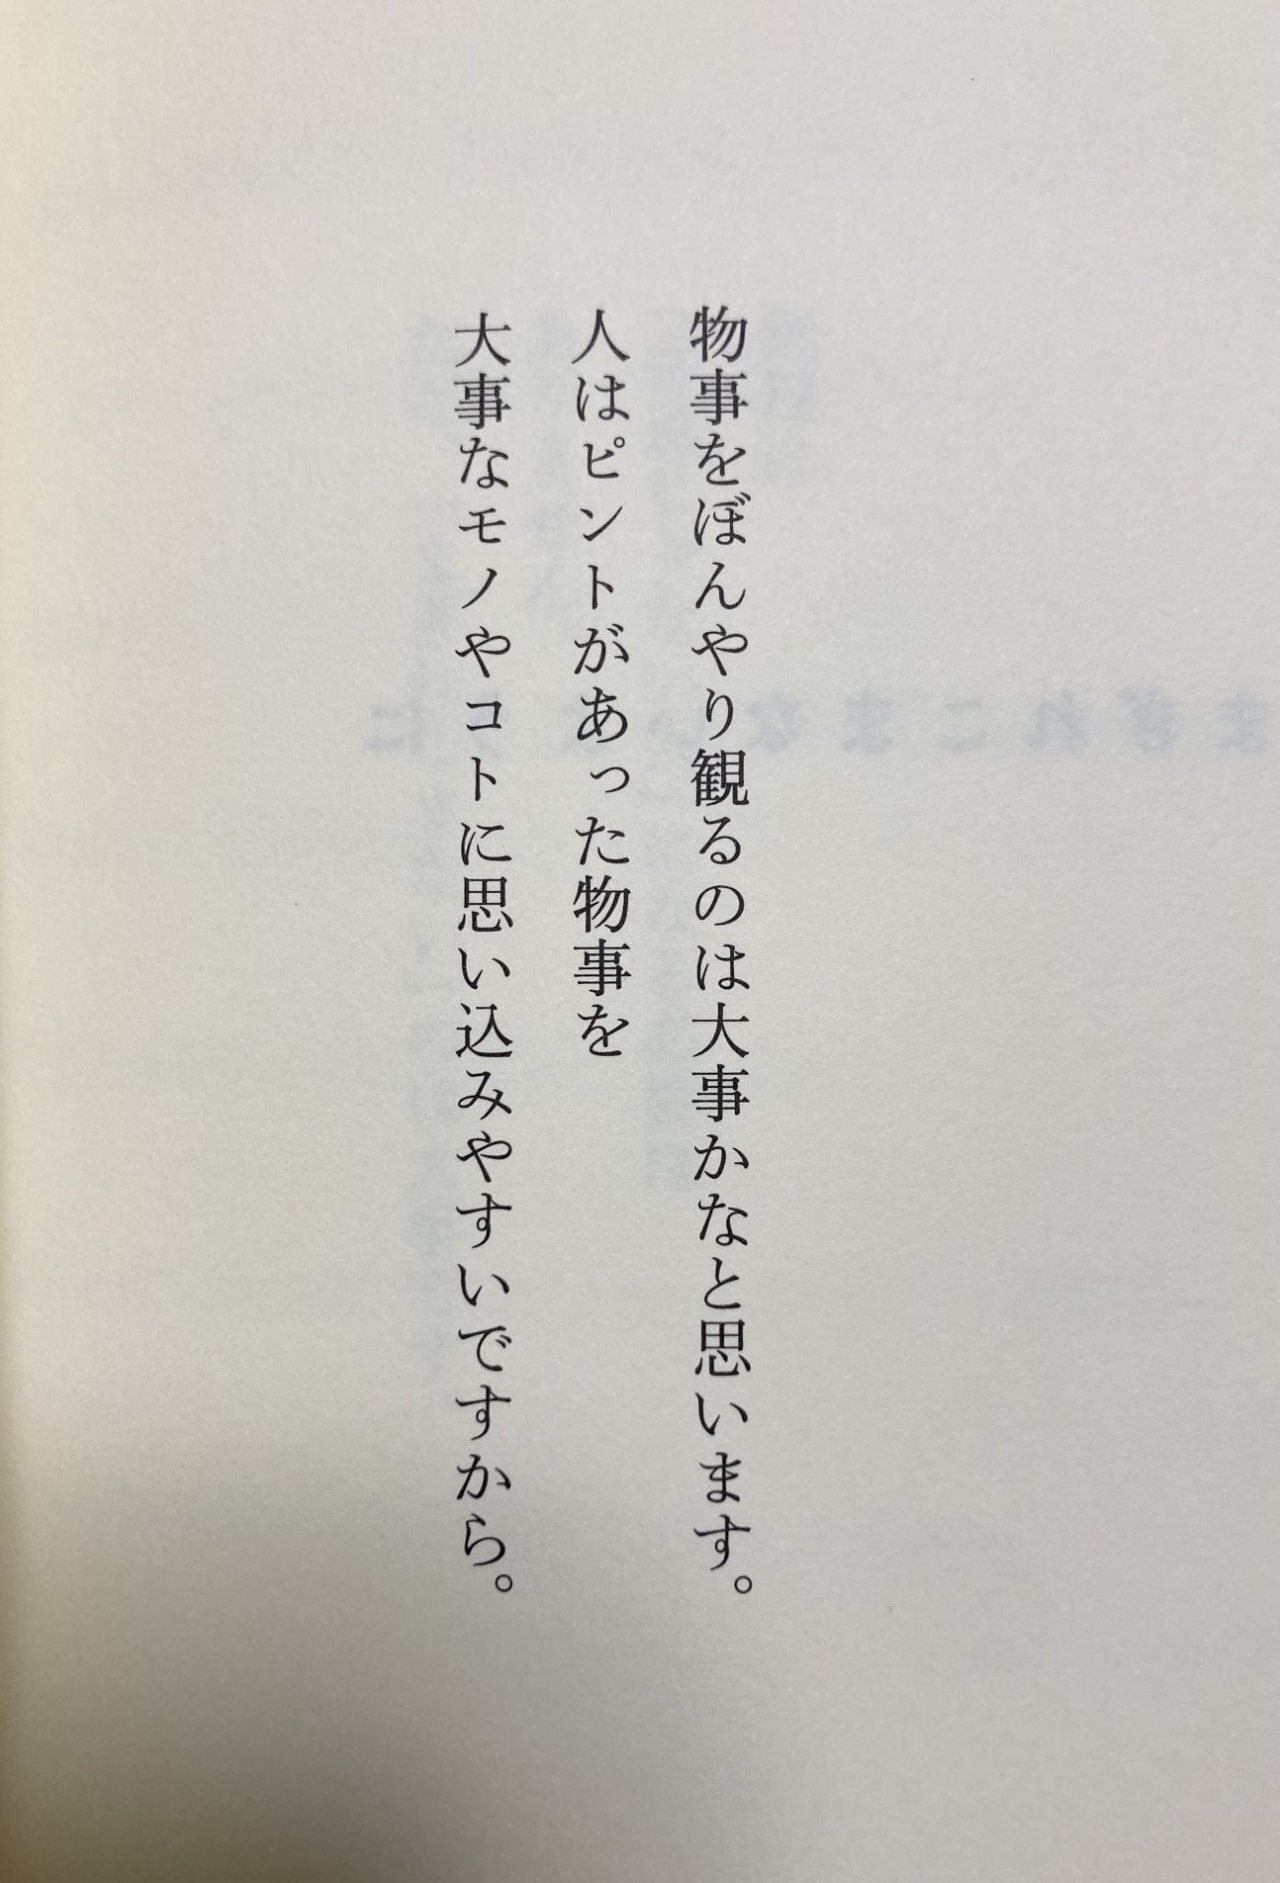 物事をぼんやり観るのは大事かなと思います。
人はピントがあった物事を
大事なモノやコトに思い込みやすいですから。